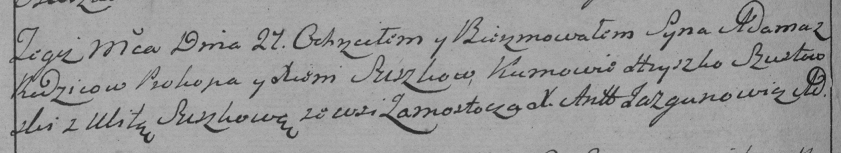 Tegoż Mca Dnia 27. Ochrzciłem y Bierzmowałem Syna Adama z
Rodzicow Prokopa y Xieni Suszkow, Kumowie Hryszko Szustow
ski z Ulitą Suszkową ze wsi Zamostocza X. Antt Jazgunowicz AD.